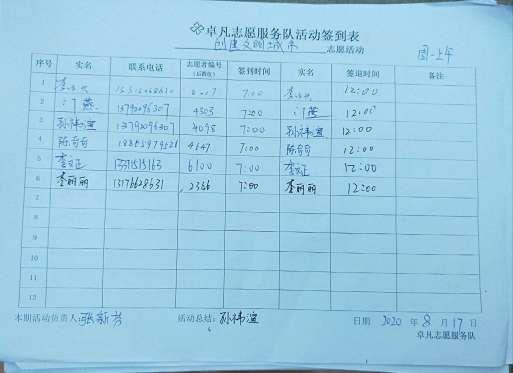 卓凡志愿服务队活动签到表
创建文明城市 志愿活动 周一上午
序号 实名 联系电话 志愿者编号(后四位) 签到时间 实名 签退时间 备注
1 7:00 12:00
2 门燕 13792096307 4303 7:00 门燕 12:00
3 孙祎渲 13792096307 4095 7:00 孙祎渲 12:00
4 陈奇奇 4647 7:00 陈奇奇 12:00
5 李云正 6100 7:00 李云正 12:00
6 李丽丽 13176628631 2386 7:00 李丽丽 12:00
7
8
9
10
11
12
本期活动负责人:张新芳 活动总结:孙祎渲 日期 2020 年 8 月 17 日
卓凡志愿服务队